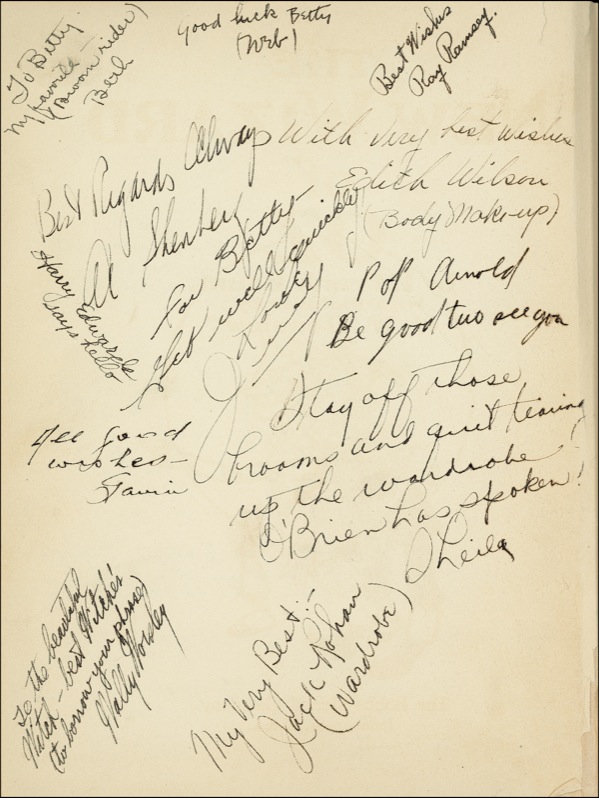 To Betty
My favorite
(Broom rider)
Beth
Good luck Betty
(Web)
Best Wishes
Ray Ramsey.
Best Regards Always
Al Shenberg
With very best wishes
Edith Wilson
(Body Make-up)
Harry Edwards
says hello
For Betty-
Get well quickly
Pop Arnold
Be good two see you
All good
wishes-
Stay off those
brooms and quit tearing
up the wardrobe
O'Brien has spoken!
Sheila
To the beautiful
Witch - best Witches
(to borrow your phrase)
Wally Worsley
My Very Best:-
Jack Rohan
(Wardrobe)